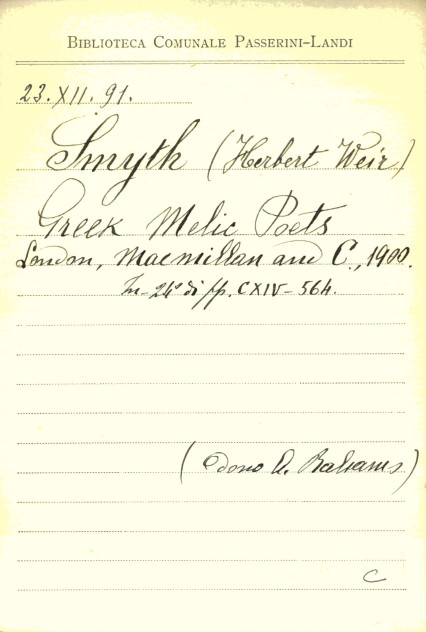 BIBLIOTECA COMUNALE PASSERINI-LANDI
23.XII.91.
Smyth (Herbert Weir)
Greek Melic Poets
London, Macmillan and C., 1900.
In-24° di pp. CXIV-564.
(Dono A. Balsamo)
C